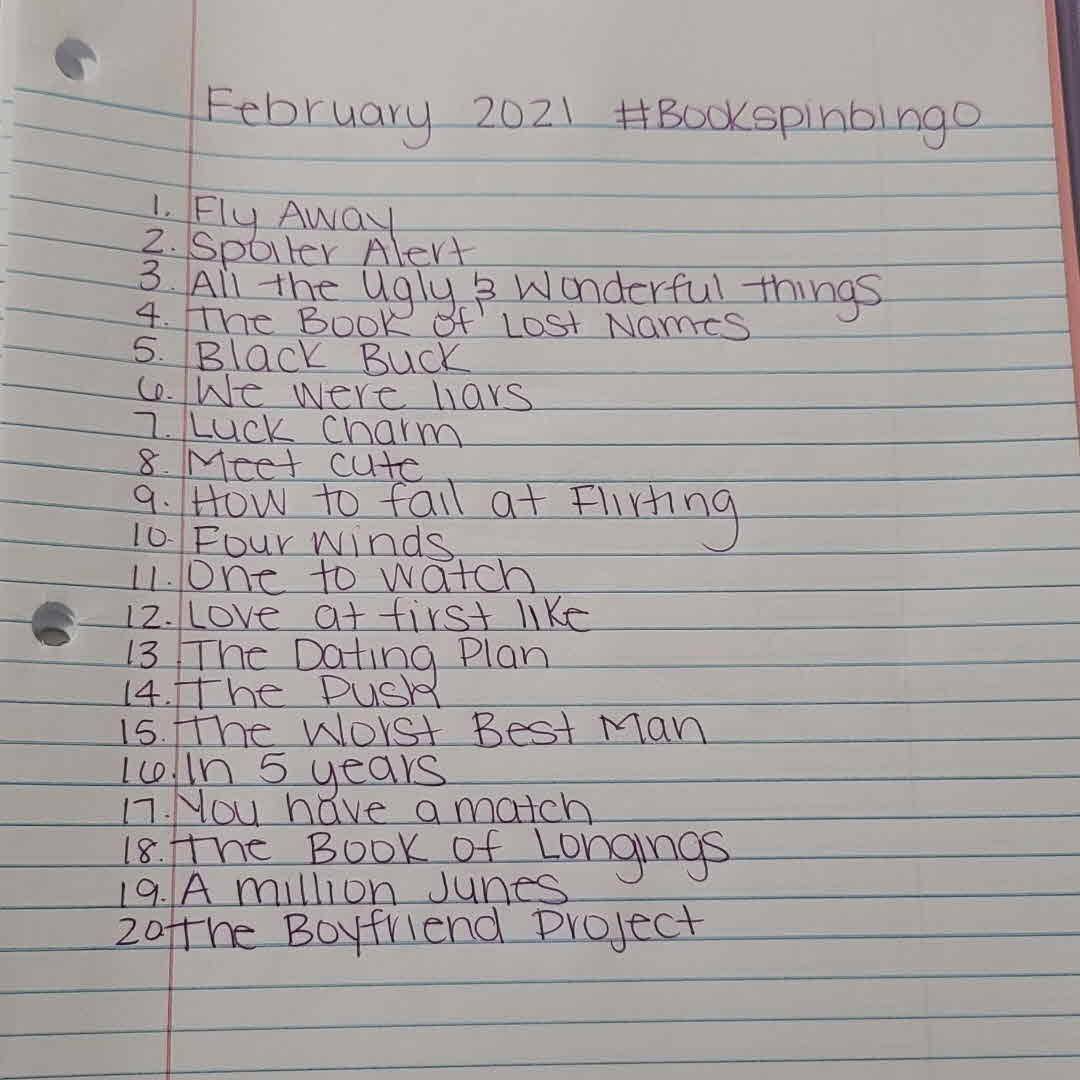 February 2021 #Bookspinbingo
1. Fly Away
2. Spoiler Alert
3. All the Ugly & Wonderful things
4. The Book of Lost Names
5. Black Buck
6. We were liars
7. Luck Charm
8. Meet cute
9. How to fail at Flirting
10. Four winds
11. One to watch
12. Love at first like
13 The Dating Plan
14. The Push
15. The Worst Best Man
16. In 5 years
17. You have a match
18. The Book of Longings
19. A million Junes
20 The Boyfriend Project